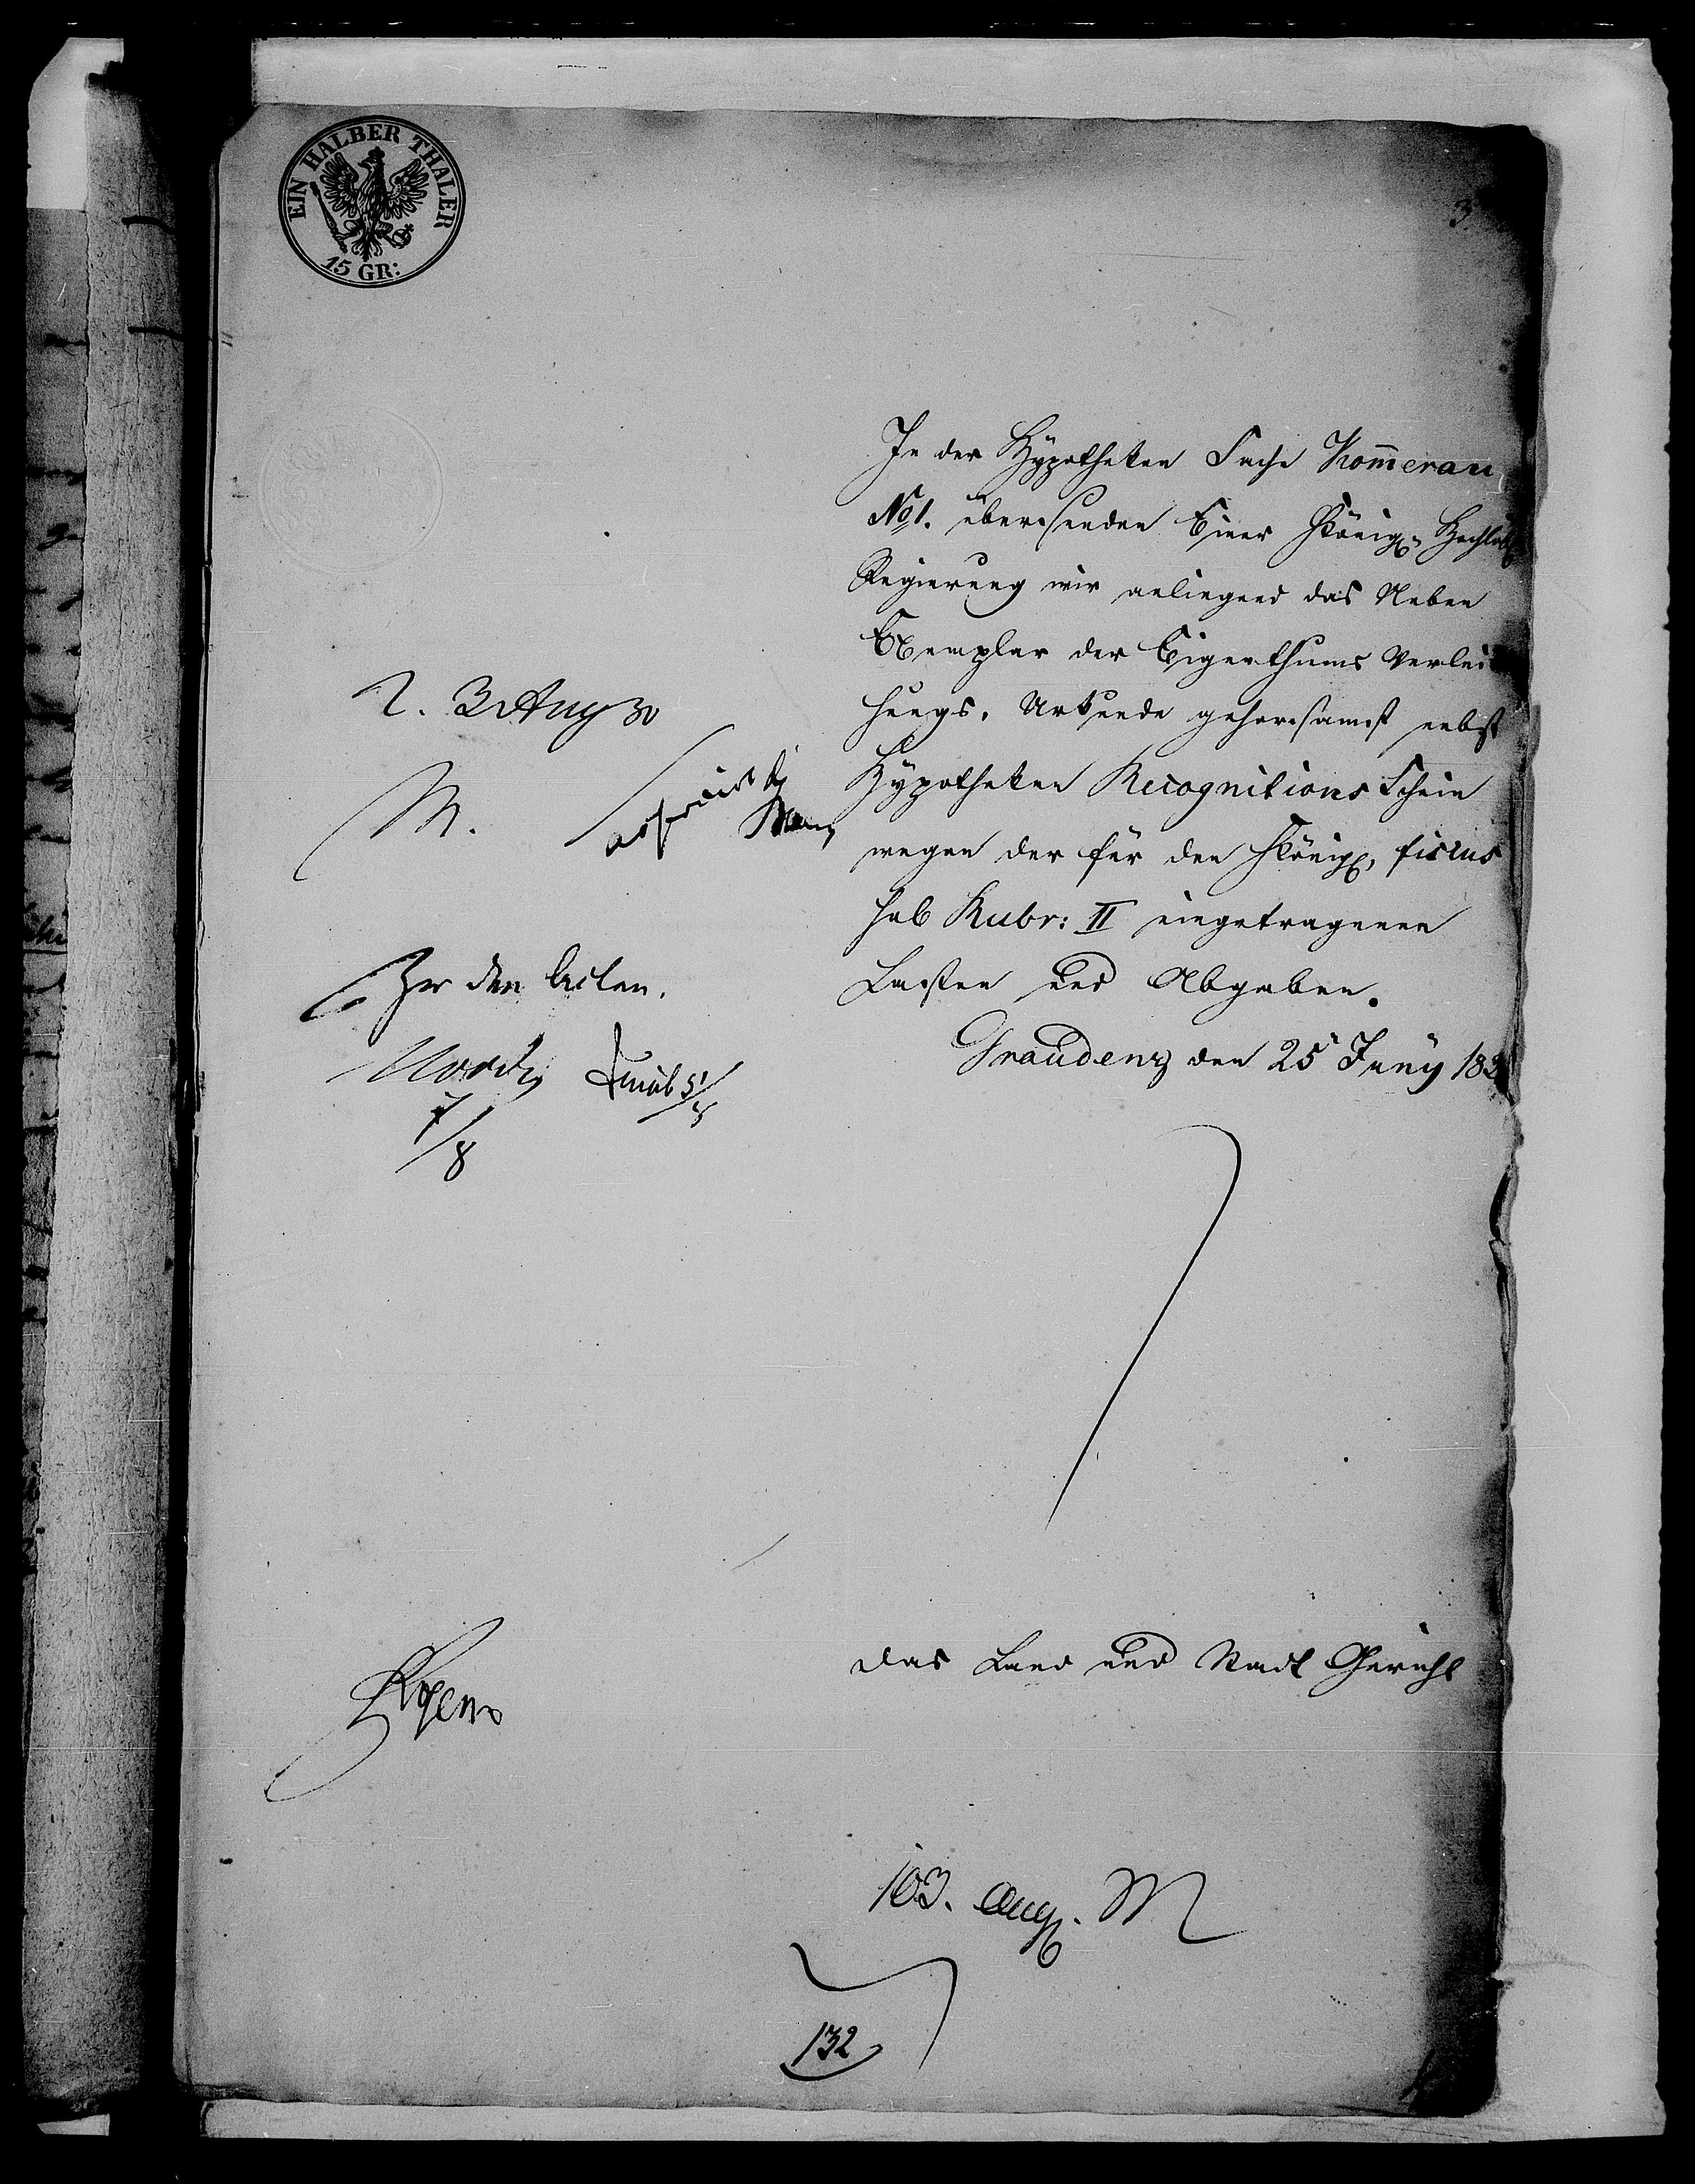 EIN HALBER THALER
15 GR:
3
In der Hypotheken Sache Kom̄erau
No 1. übersenden Einer Königl. Hochlöbl
Regierung wir anliegend das Neben
Exemplar der Eigenthums Verlei
hungs. Urkunde gehorsamst nebst
Hypotheken Recognitions Schein
wegen der für den Königl. fiscus
sub Rubr: II eingetragenen
Lasten und Abgaben.
Graudenz den 25 Juny 183
2. 3 Aug 30
M.
Zu den Acten.
7/8
das Land und Stadt Gericht
103. Aug. M
132